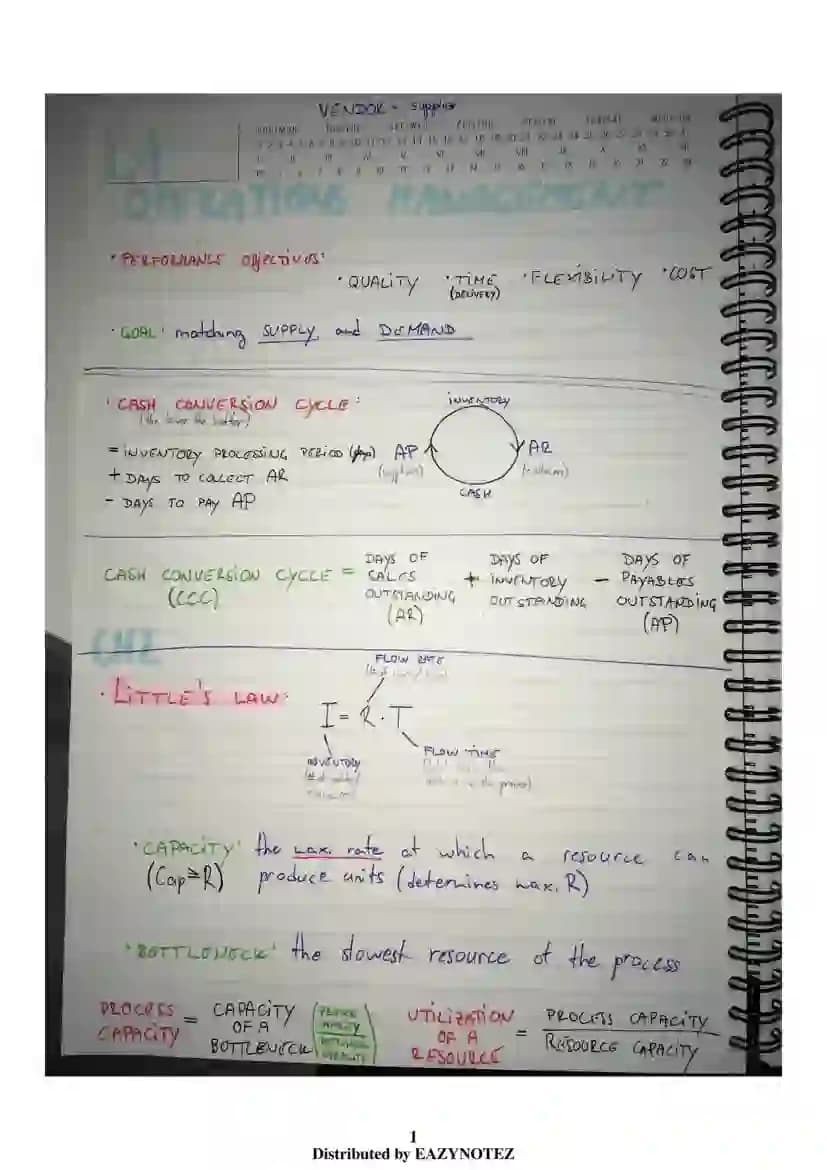 VENDOR = supplier
L1
OPERATIONS MANAGEMENT
'PERFORMANCE OBJECTIVES'
• QUALITY • TIME • FLEXIBILITY • COST
(DELIVERY)
'GOAL' matching SUPPLY and DEMAND
'CASH CONVERSION CYCLE:
(the lower the better)
= INVENTORY PROCESSING PERIOD (days)
+ DAYS TO COLLECT AR
- DAYS TO PAY AP
INVENTORY
AP
AR
CASH
CASH CONVERSION CYCLE = DAYS OF SALES OUTSTANDING + DAYS OF INVENTORY OUTSTANDING - DAYS OF PAYABLES OUTSTANDING
(CCC) (AR) (AP)
CH2
• LITTLE'S LAW:
FLOW RATE
I = R · T
INVENTORY
FLOW TIME
'CAPACITY' the max. rate at which a resource can
(Cap ≥ R) produce units (determines max. R)
'BOTTLENECK' the slowest resource of the process
PROCESS CAPACITY = CAPACITY OF A BOTTLENECK
UTILIZATION OF A RESOURCE = PROCESS CAPACITY
RESOURCE CAPACITY
1
Distributed by EAZYNOTEZ